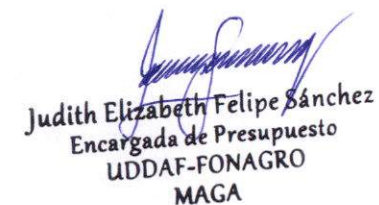 Judith Elizabeth Felipe Sánchez
Encargada de Presupuesto
UDDAF-FONAGRO
MAGA